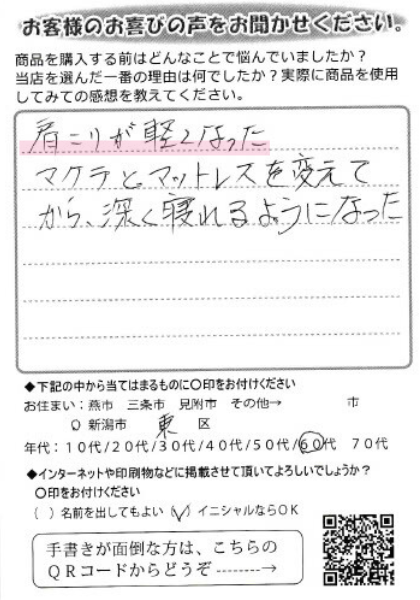 お客様のお喜びの声をお聞かせください。
商品を購入する前はどんなことで悩んでいましたか？
当店を選んだ一番の理由は何でしたか？実際に商品を使用
してみての感想を教えてください。
肩こりが軽くなった
マクラとマットレスを変えて
から、深く寝れるようになった
◆下記の中から当てはまるものに〇印をお付けください
お住まい：燕市　三条市　見附市　その他→　　　　市
○ 新潟市　東　区
年代：１０代/２０代/３０代/４０代/５０代/６０代　７０代
◆インターネットや印刷物などに掲載させて頂いてよろしいでしょうか？
〇印をお付けください
（　）名前を出してもよい（✓）イニシャルならＯＫ
手書きが面倒な方は、こちらの
ＱＲコードからどうぞ--------→